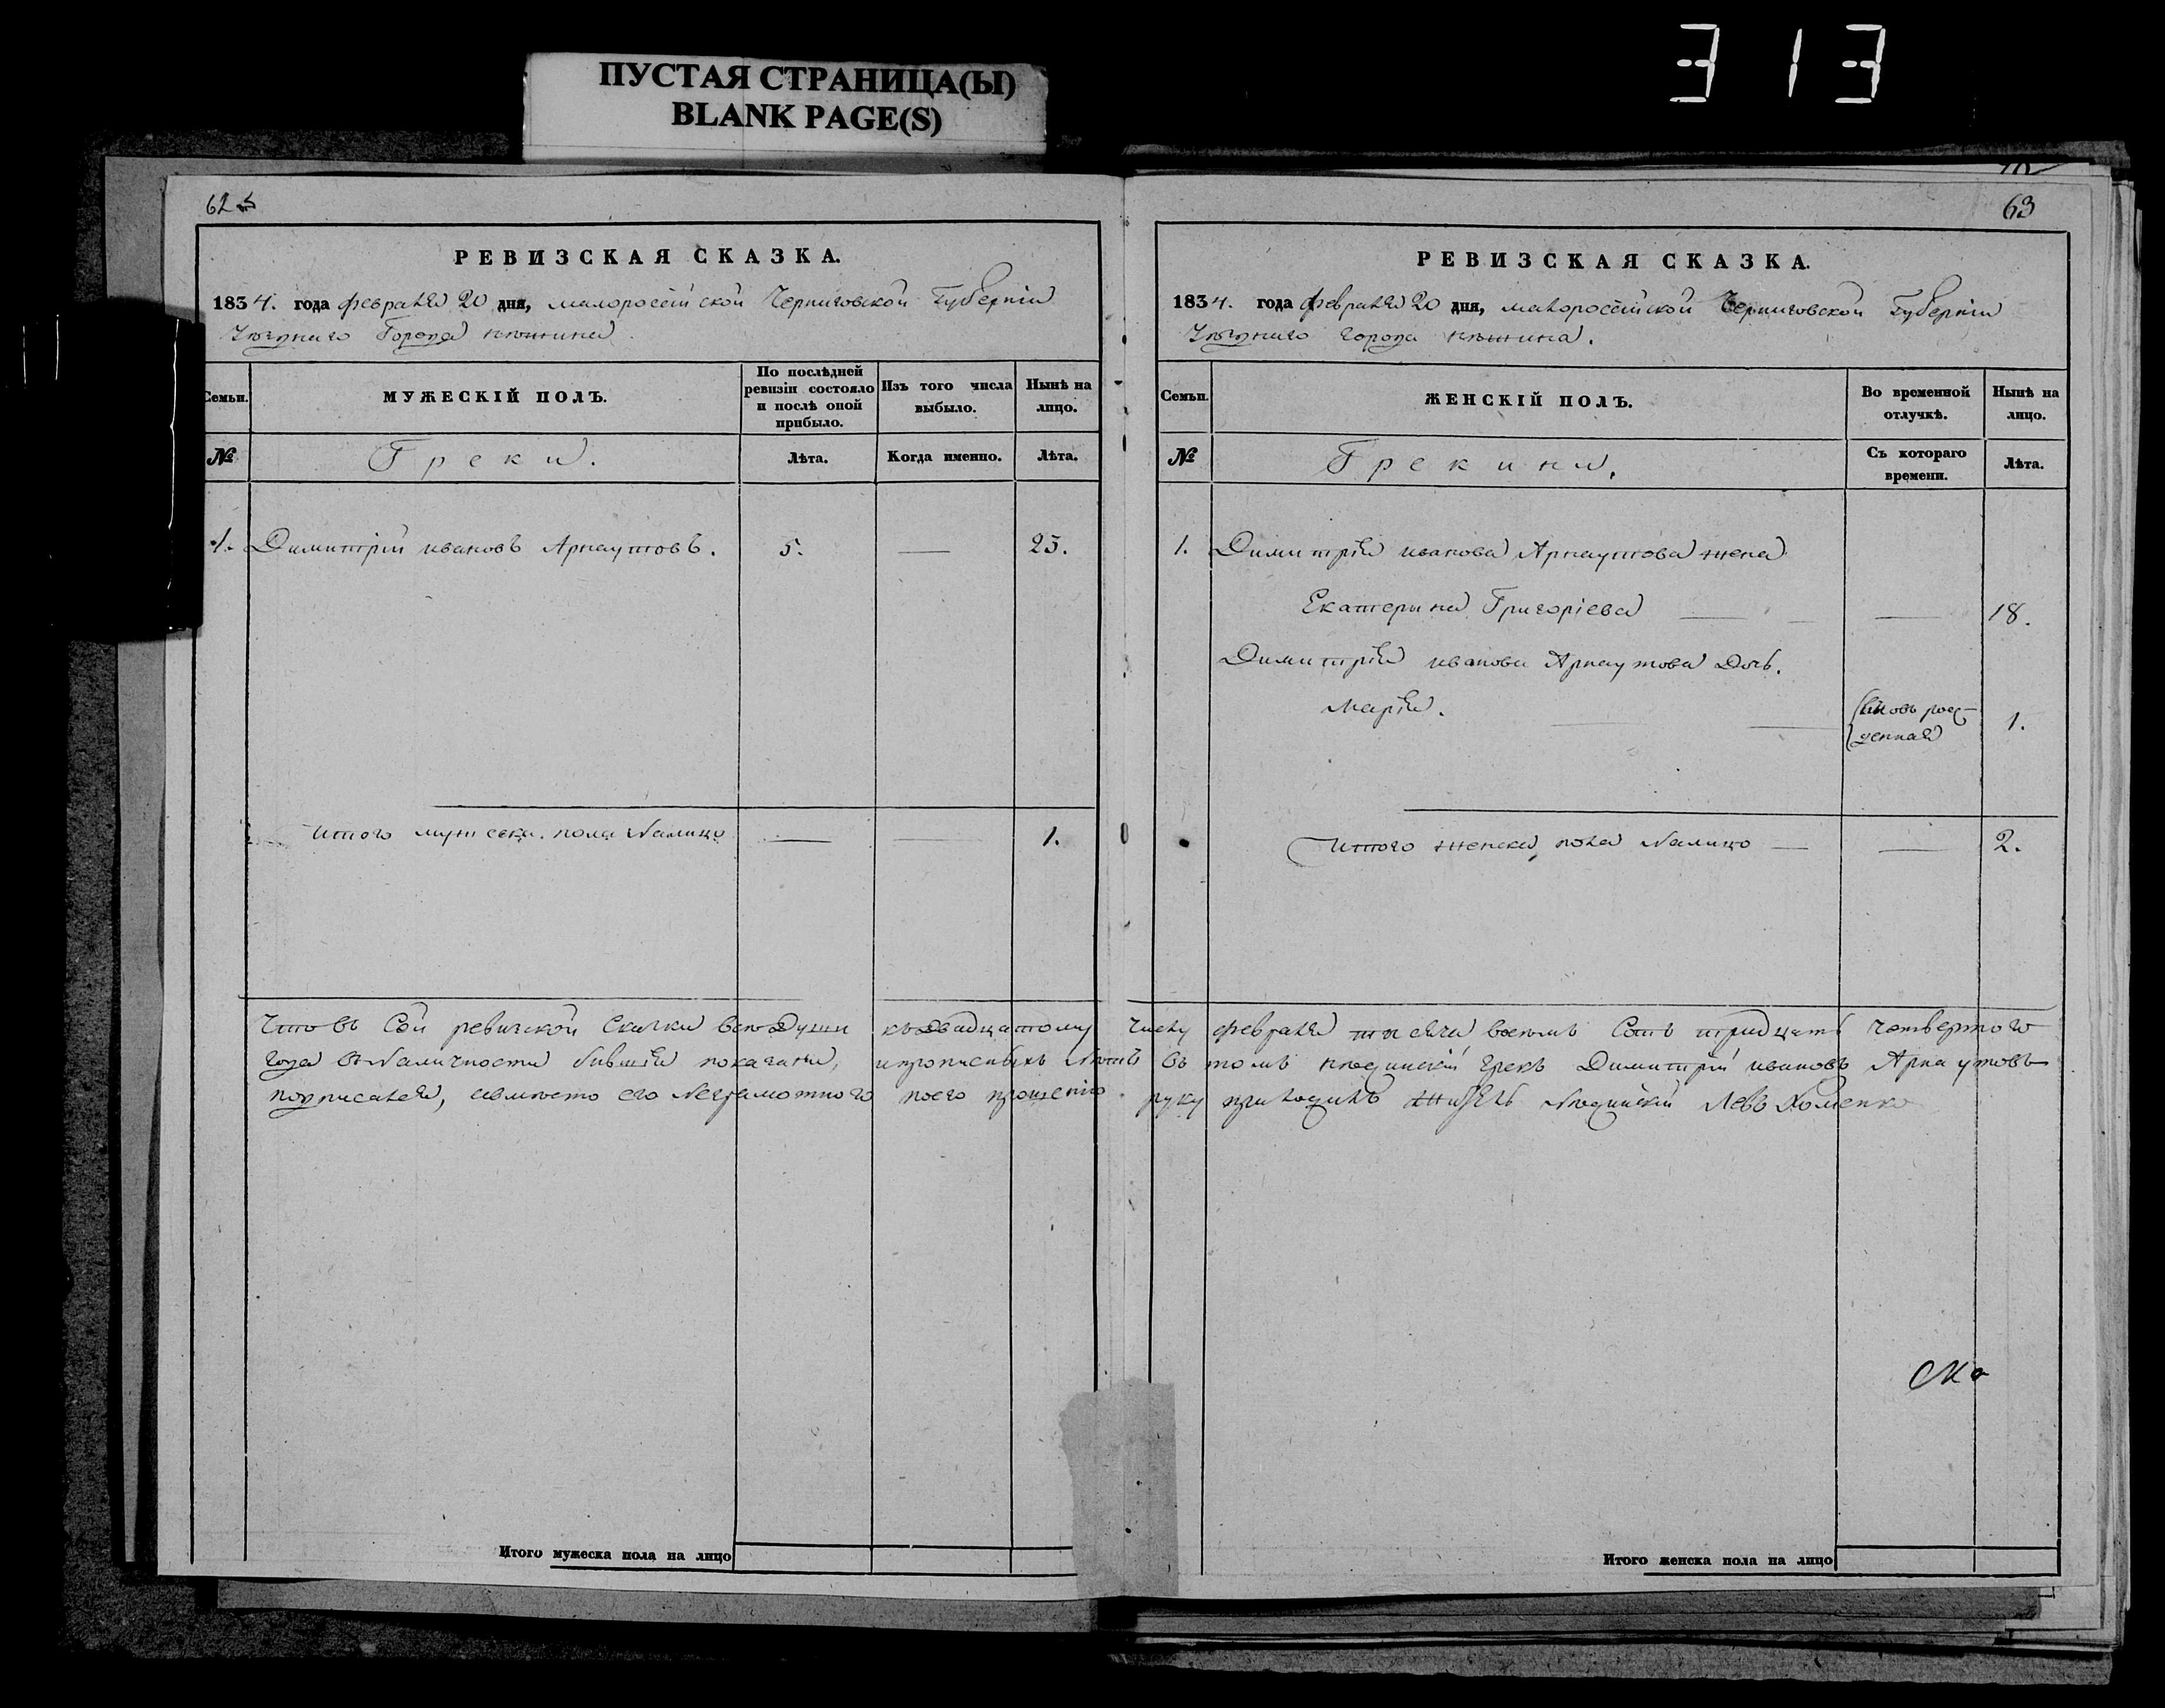 313
ПУСТАЯ СТРАНИЦА(Ы)
BLANK PAGE(S)
62
РЕВИЗСКАЯ СКАЗКА.
1834. года февраля 20 дня, малоросейской Черниговской Губерніи
Уезднаго Города нѣжина
Семьи.
МУЖЕСКІЙ ПОЛЪ.
По послѣдней ревизіи состояло и послѣ оной прибыло.
Изъ того числа выбыло.
Нынѣ на лицо.
№
Греки.
Лѣта.
Когда именно.
Лѣта.
1. Димитрій ивановъ Арнаутовъ. 5. — 23.
Итого мужеска. пола Налицо — — 1.
Итого мужеска пола на лицо
63
РЕВИЗСКАЯ СКАЗКА.
1834. года февраля 20 дня, малоросейской Черниговской Губерніи
Уезднаго города нѣжина.
Семьи.
ЖЕНСКІЙ ПОЛЪ.
Во временной отлучкѣ.
Нынѣ на лицо.
№
Грекини.
Съ котораго времени.
Лѣта.
1. Димитрія иванова Арнаутова жена
Екатерина Григоріева — — 18.
Димитрія иванова Арнаутова Дочь.
Марія. — вновь рож-
денная 1.
Итого женска пола Налицо — — 2.
Что въ Сей ревизской Сказки всѣ Души къ двадцатому числу февраля тысяча восемъ Сотъ тридцать четвертого
года въ Наличности бывшія показани, въ томъ нѣжинскій грекъ Димитрій ивановъ Арнаутовъ
подписался, авместо его Неграмотного поего прошенію руку приложилъ житель Нѣжинскій Левъ Хоменко
Итого женска пола на лицо